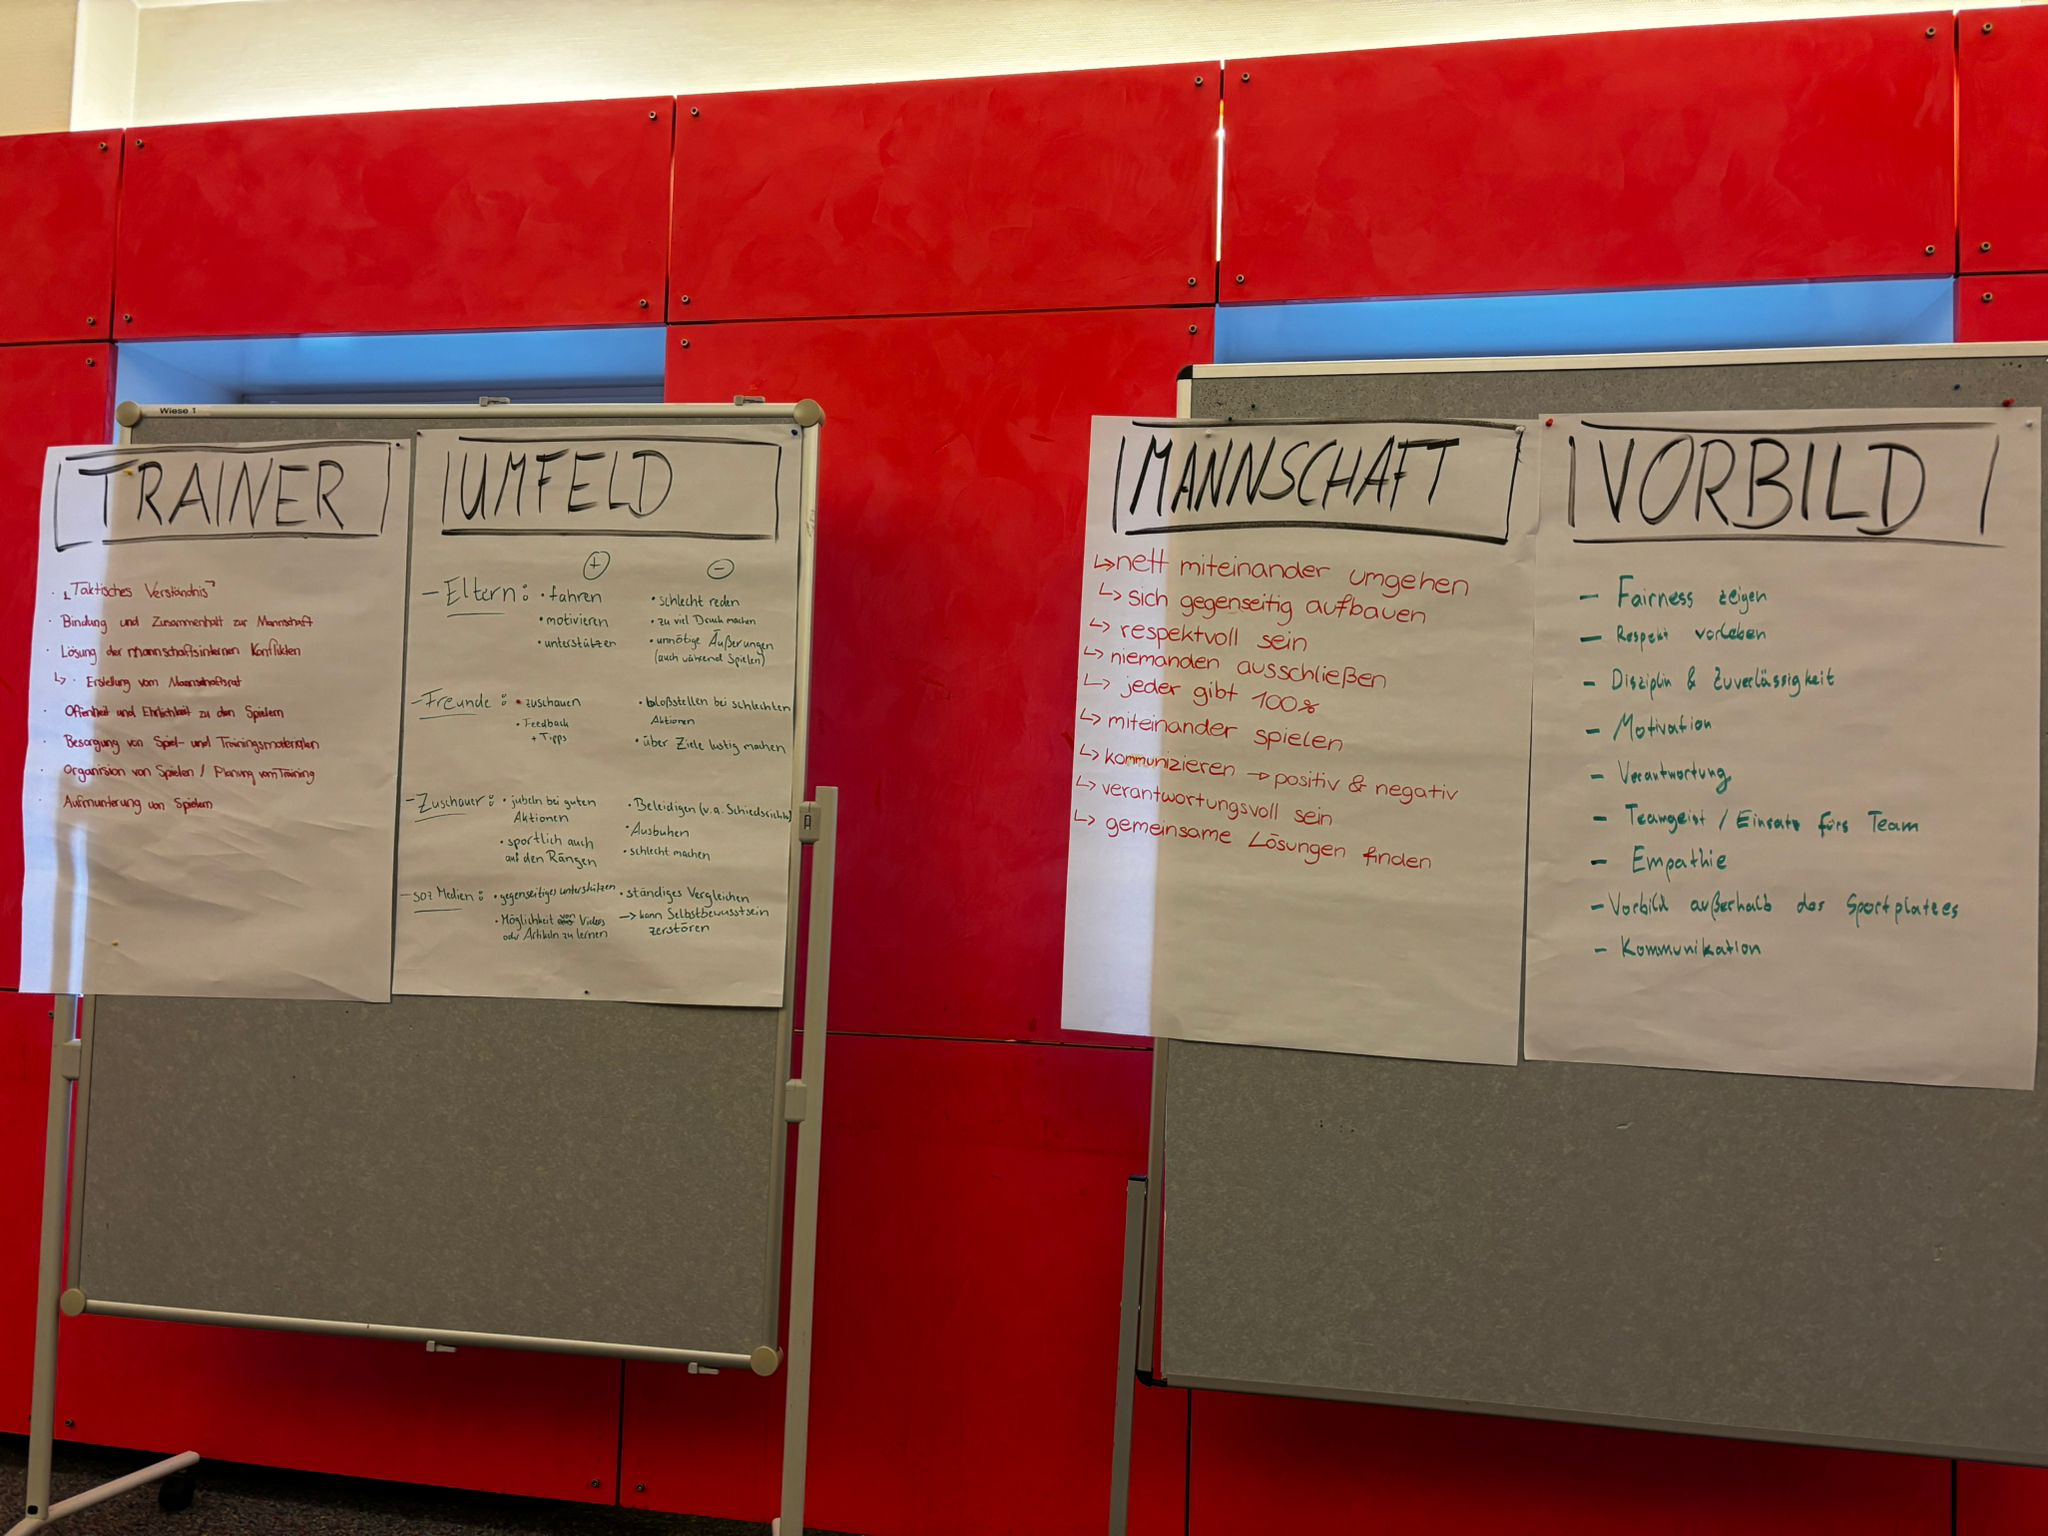 Wiese 1
TRAINER
· „Taktisches Verständnis"
· Bindung und Zusammenhalt zur Mannschaft
· Lösung der mannschaftsinternen Konflikten
↳ · Erstellung vom Mannschaftsrat
· Offenheit und Ehrlichkeit zu den Spielern
· Besorgung von Spiel- und Trainingsmaterialen
· Organision von Spielen / Planung vom Training
· Aufmunterung von Spielern
UMFELD
+ -
- Eltern: • fahren
• motivieren
• unterstützen
• schlecht reden
• zu viel Druck machen
• unnötige Äußerungen
(auch während Spielen)
- Freunde: • zuschauen
• Feedback
+ Tipps
• bloßstellen bei schlechten
Aktionen
• über Ziele lustig machen
- Zuschauer: • jubeln bei guten
Aktionen
• sportlich auch
auf den Rängen
• Beleidigen (v.a. Schiedsrichter)
• Ausbuhen
• schlecht machen
- soz Medien: • gegenseitiges unterstützen
• Möglichkeit von Videos
oder Artikeln zu lernen
• ständiges Vergleichen
→ kann Selbstbewusstsein
zerstören
MANNSCHAFT
↳ nett miteinander umgehen
↳ sich gegenseitig aufbauen
↳ respektvoll sein
↳ niemanden ausschließen
↳ jeder gibt 100%
↳ miteinander spielen
↳ kommunizieren → positiv & negativ
↳ verantwortungsvoll sein
↳ gemeinsame Lösungen finden
VORBILD
- Fairness zeigen
- Respekt vorleben
- Disziplin & Zuverlässigkeit
- Motivation
- Verantwortung
- Teamgeist / Einsatz fürs Team
- Empathie
- Vorbild außerhalb des Sportplatzes
- Kommunikation